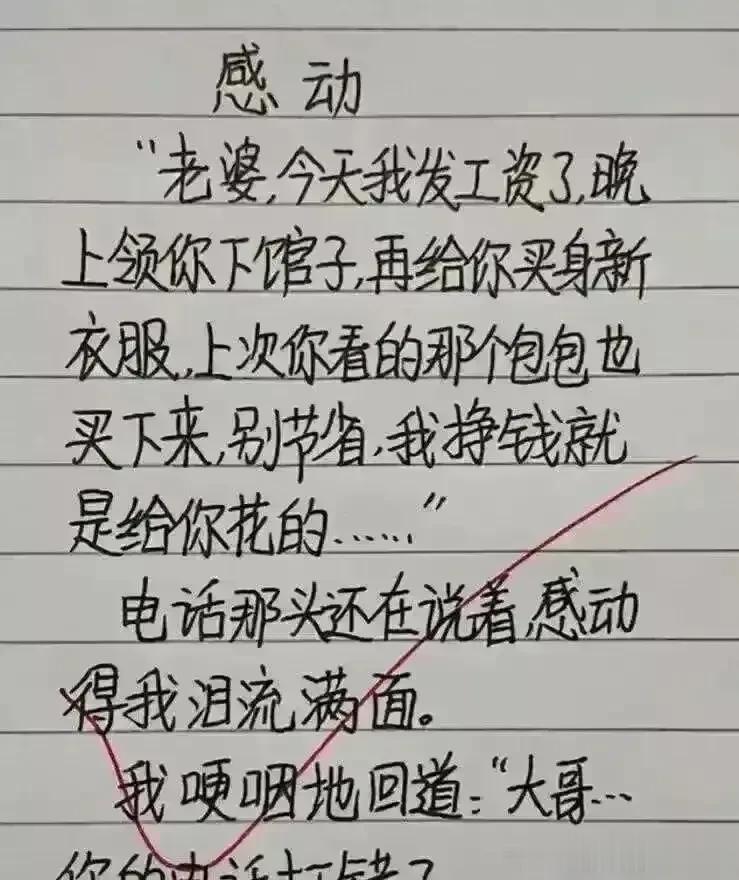 感动
“老婆,今天我发工资了,晚
上领你下馆子,再给你买身新
衣服,上次你看的那个包包也
买下来,别节省,我挣钱就
是给你花的……”
电话那头还在说着,感动
得我泪流满面。
我哽咽地回道:“大哥…
你的电话打错了